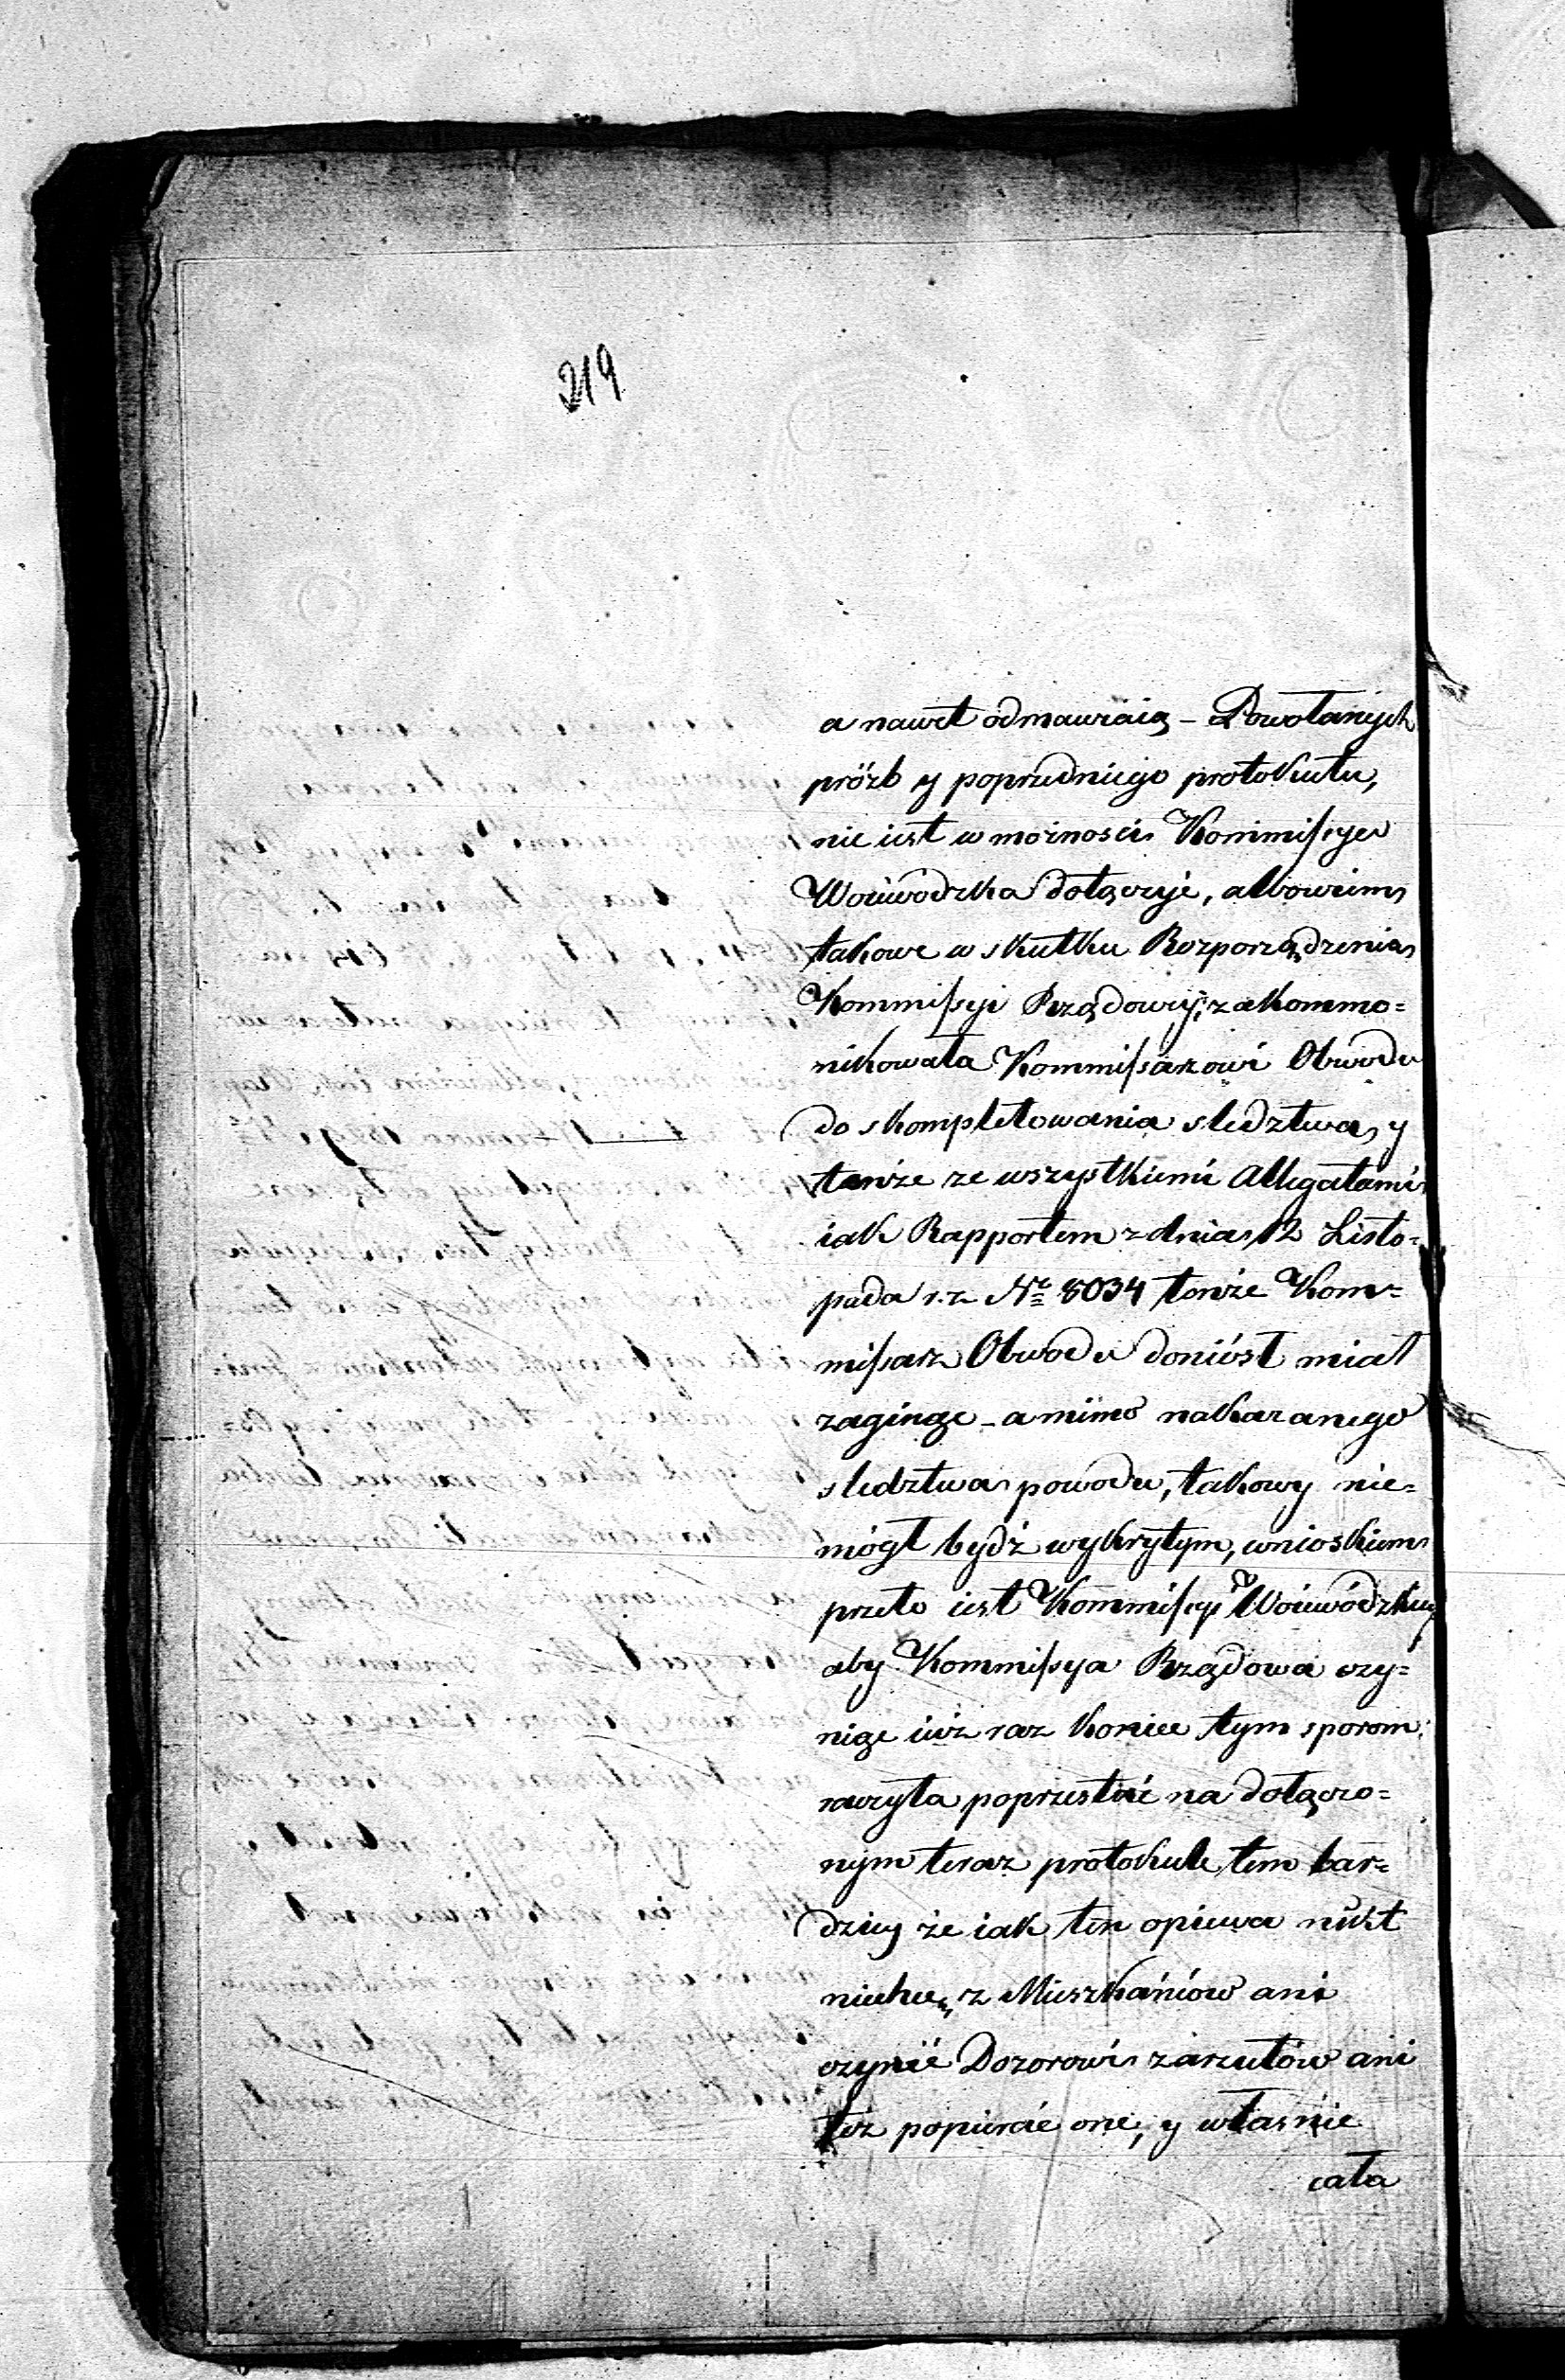 219
a nawet odmawiaią – Powołanych
próźb y poprzedniego protokułu,
nie iest w możności Kommissya
Woiewodzka dołączyć, albowiem
takowe w skutku Rozporządzenia
Kommissyi Rządowey, zakommo=
nikowała Kommissarzowi Obwodu
do skompletowania sledztwa, y
tenże ze wszystkiemi Allegatami
iak Rapportem z dnia 12 Listo=
pada r. z. Nº 8034 tenże Kom=
missarz Obwodu doniósł miał
zaginąć – a mimo nakazanego
sledztwa powodu, takowy nie=
mógł bydź wykrytym, wnioskiem
przeto iest Kommissyi Woiewódzkiey
aby Kommissya Rządowa czy=
niąc iuż raz koniec tym sporom
raczyła poprzestać na dołączo=
nym teraz protokule tem bar=
dziey że iak ten opiewa nikt
niechce z Mieszkańców ani
czynić Dozorowi zarzutów ani
też popierać one, y własnie
cała